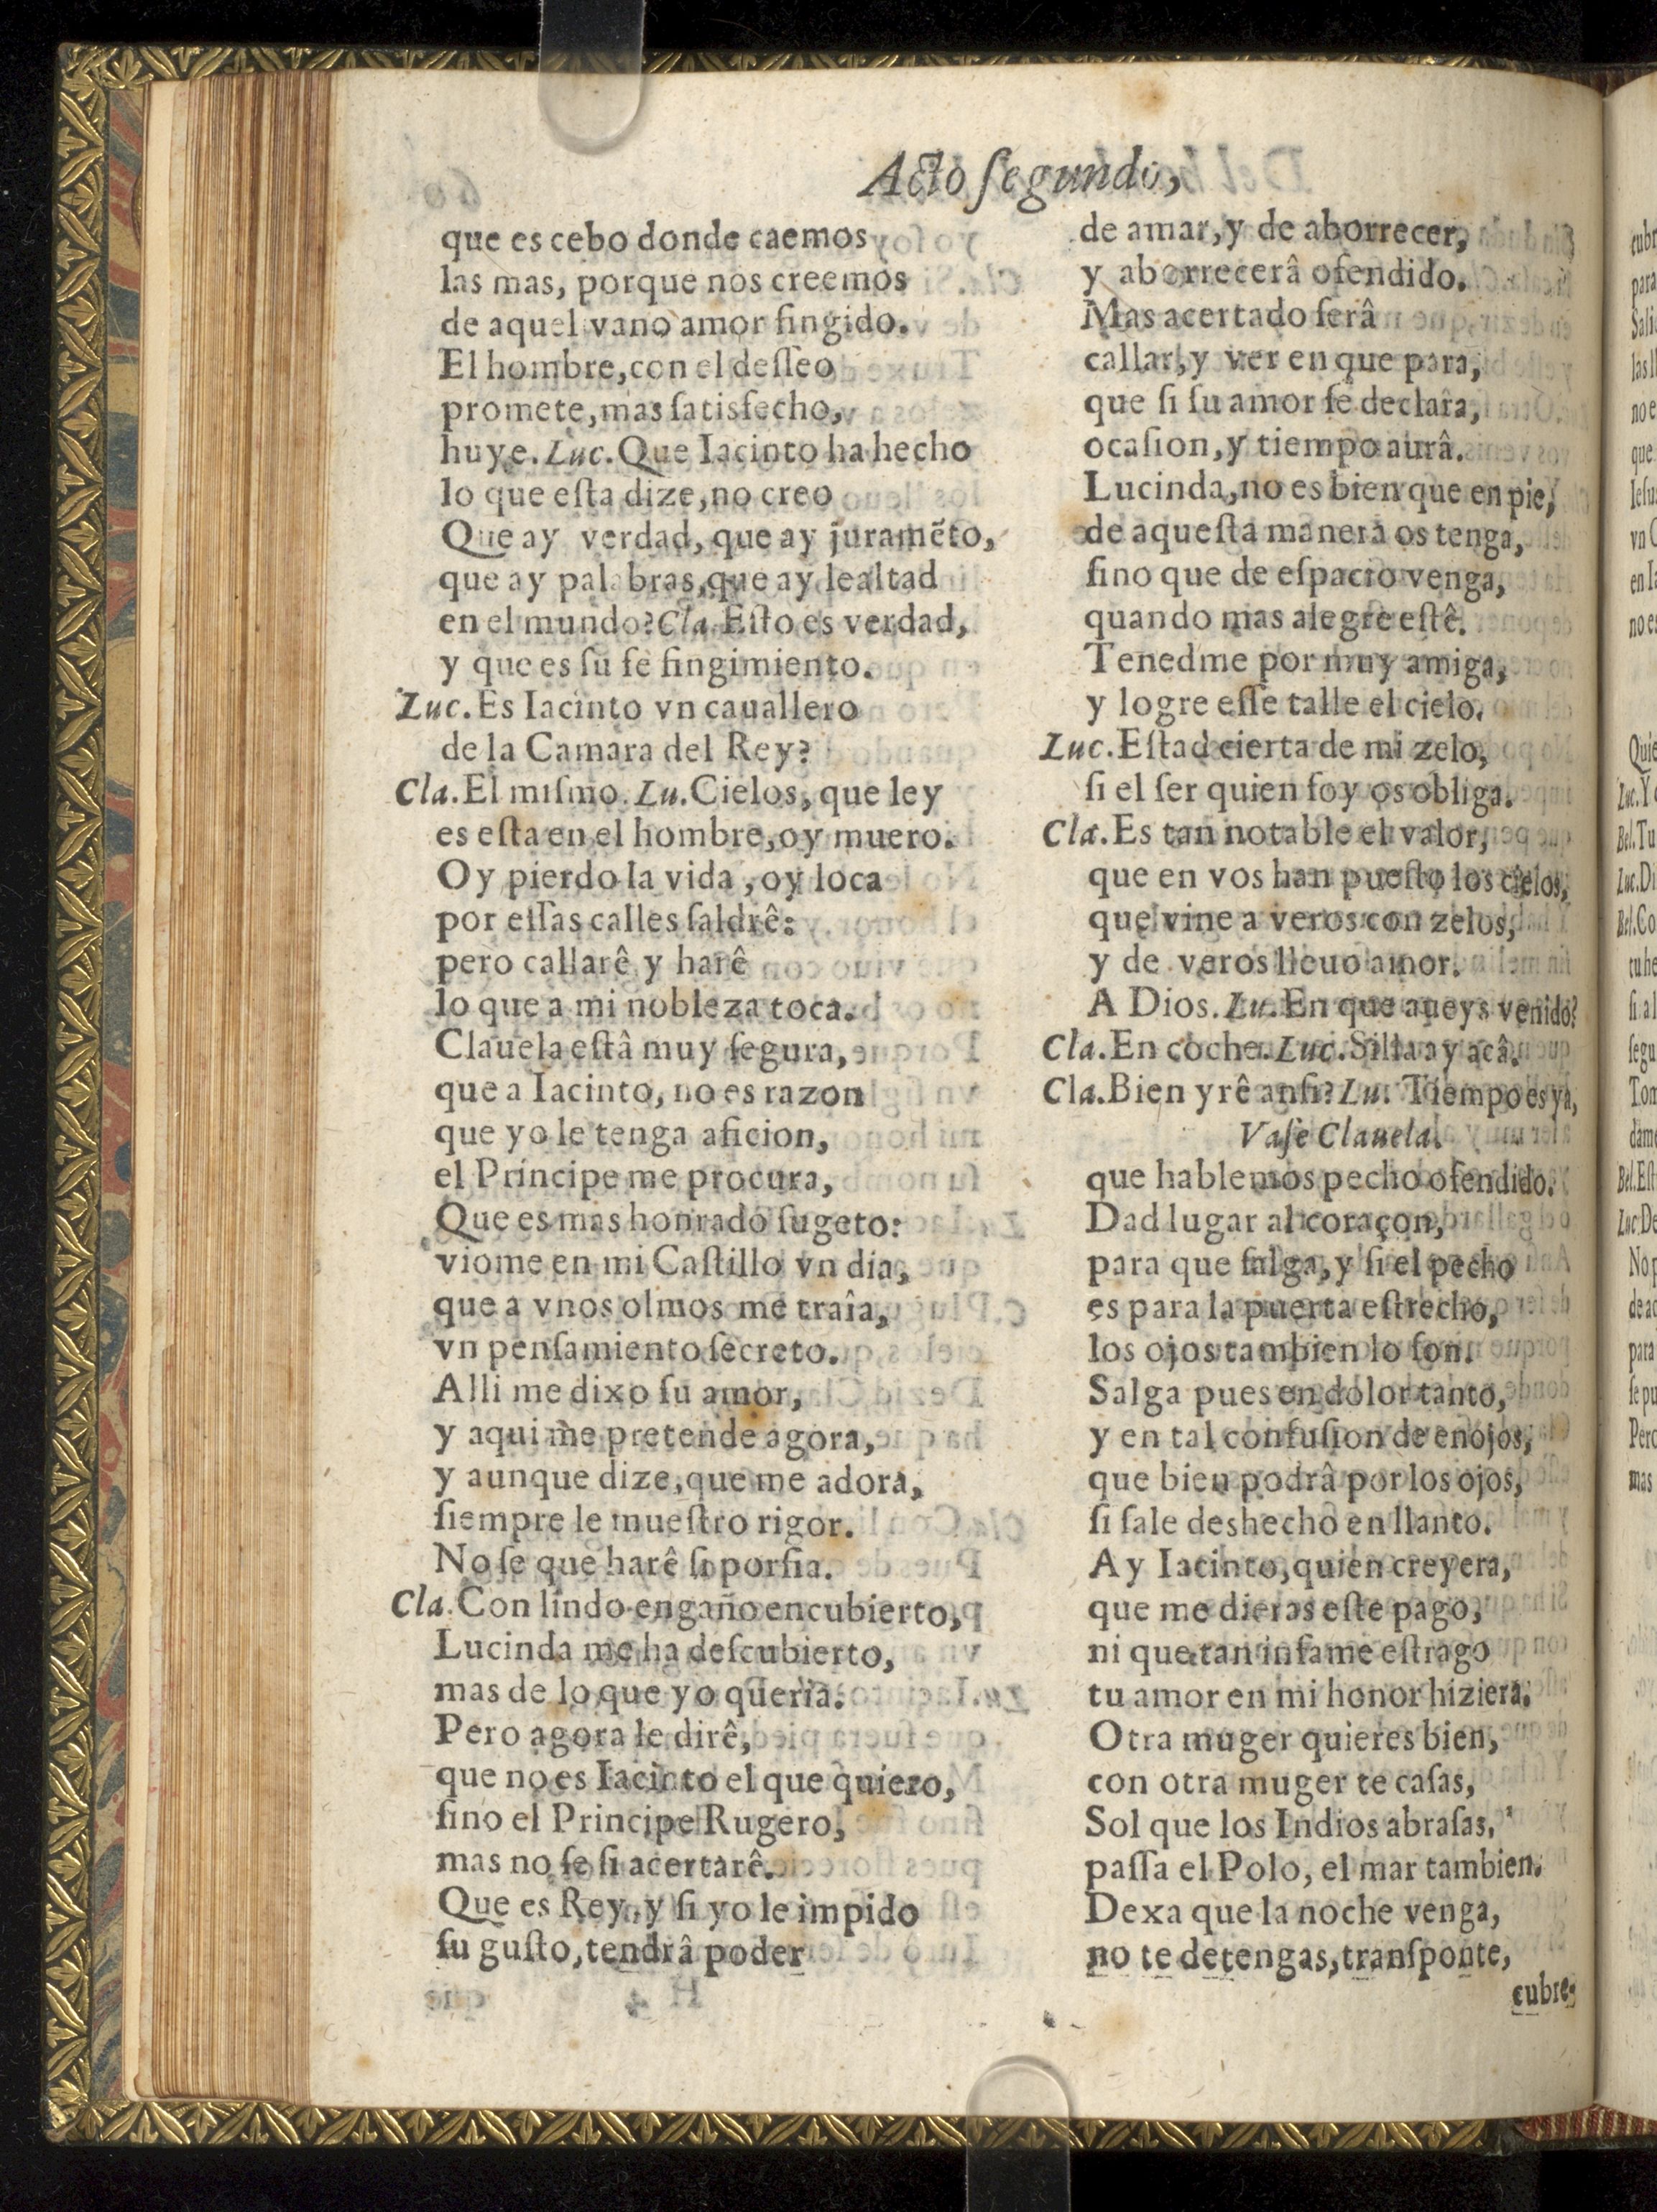 Acto ſegundo,
que es cebo donde caemos
las mas, porque nos creemos
de aquel vano amor fingido.
El hombre, con el deſſeo
promete, mas ſatisfecho,
huye. Luc. Que Iacinto ha hecho
lo que eſta dize, no creo
Que ay verdad, que ay juramẽto,
que ay palabras, que ay lealtad
en el mundo? Cla. Eſto es verdad,
y que es ſu fe fingimiento.
Luc. Es Iacinto vn cauallero
de la Camara del Rey?
Cla. El miſmo. Lu. Cielos, que ley
es eſta en el hombre, oy muero.
Oy pierdo la vida, oy loca
por eſſas calles ſaldrê:
pero callarê y harê
lo que a mi nobleza toca.
Clauela eſtâ muy ſegura,
que a Iacinto, no es razon
que yo le tenga aficion,
el Principe me procura,
Que es mas honrado ſugeto:
viome en mi Caſtillo vn dia,
que a vnos olmos me traîa,
vn penſamiento ſecreto.
Alli me dixo ſu amor,
y aqui me pretende agora,
y aunque dize, que me adora,
ſiempre le mueſtro rigor.
No ſe que harê ſi porfia.
Cla. Con lindo engaño encubierto,
Lucinda me ha deſcubierto,
mas de lo que yo queria.
Pero agora le dirê,
que no es Iacinto el que quiero,
ſino el Principe Rugero,
mas no ſe ſi acertarê.
Que es Rey, y ſi yo le impido
ſu guſto, tendrâ poder
de amar, y de aborrecer,
y aborrecerâ ofendido.
Mas acertado ſerâ
callar, y ver en que para,
que ſi ſu amor ſe declara,
ocaſion, y tiempo aurâ.
Lucinda, no es bien que en pie,
de aqueſta manera os tenga,
ſino que de eſpacio venga,
quando mas alegre eſtê.
Tenedme por muy amiga,
y logre eſſe talle el cielo.
Luc. Eſtad cierta de mi zelo,
ſi el ſer quien ſoy os obliga.
Cla. Es tan notable el valor,
que en vos han pueſto los cielos,
que vine a veros con zelos,
y de veros lleuo amor.
A Dios. Lu. En que aueys venido?
Cla. En coche. Luc. Silla ay acâ.
Cla. Bien yrê anſi? Lu. Tiempo es ya,
Vaſe Clauela.
que hablemos pecho ofendido.
Dad lugar al coraçon,
para que ſalga, y ſi el pecho
es para la puerta eſtrecho,
los ojos tambien lo ſon.
Salga pues en dolor tanto,
y en tal confuſion de enojos,
que bien podrâ por los ojos,
ſi ſale deshecho en llanto.
Ay Iacinto, quien creyera,
que me dieras eſte pago,
ni que tan infame eſtrago
tu amor en mi honor hiziera.
Otra muger quieres bien,
con otra muger te caſas,
Sol que los Indios abraſas,
paſſa el Polo, el mar tambien.
Dexa que la noche venga,
no te detengas, tranſponte,
cubre